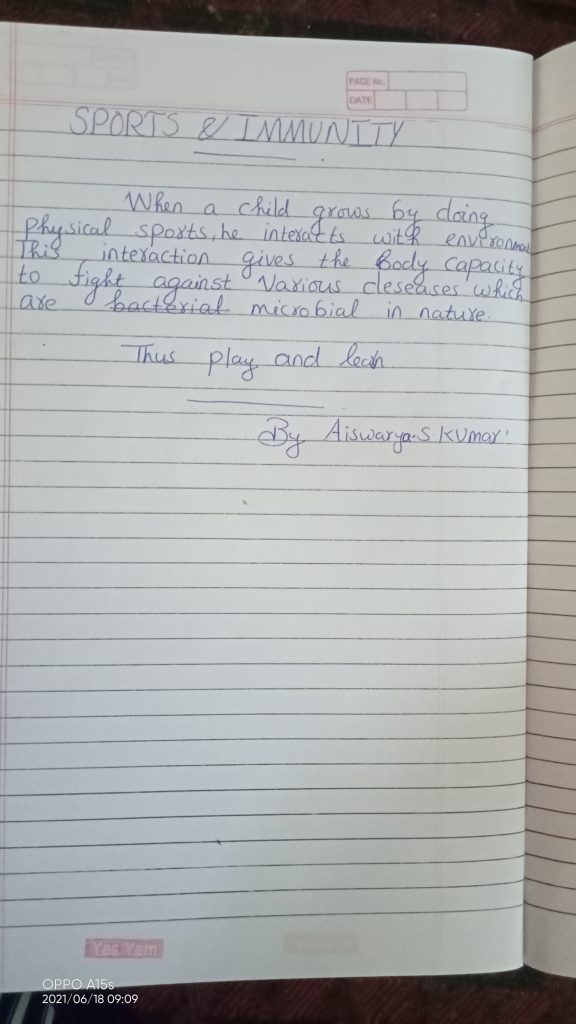 PAGE No.
DATE
SPORTS & IMMUNITY
When a child grows by doing
physical sports, he interacts with environment
This interaction gives the Body capacity
to fight against various deseases which
are bacterial microbial in nature.
Thus play and learn
By Aiswarya.S.Kumar
Yes Yem
OPPO A15s
2021/06/18 09:09